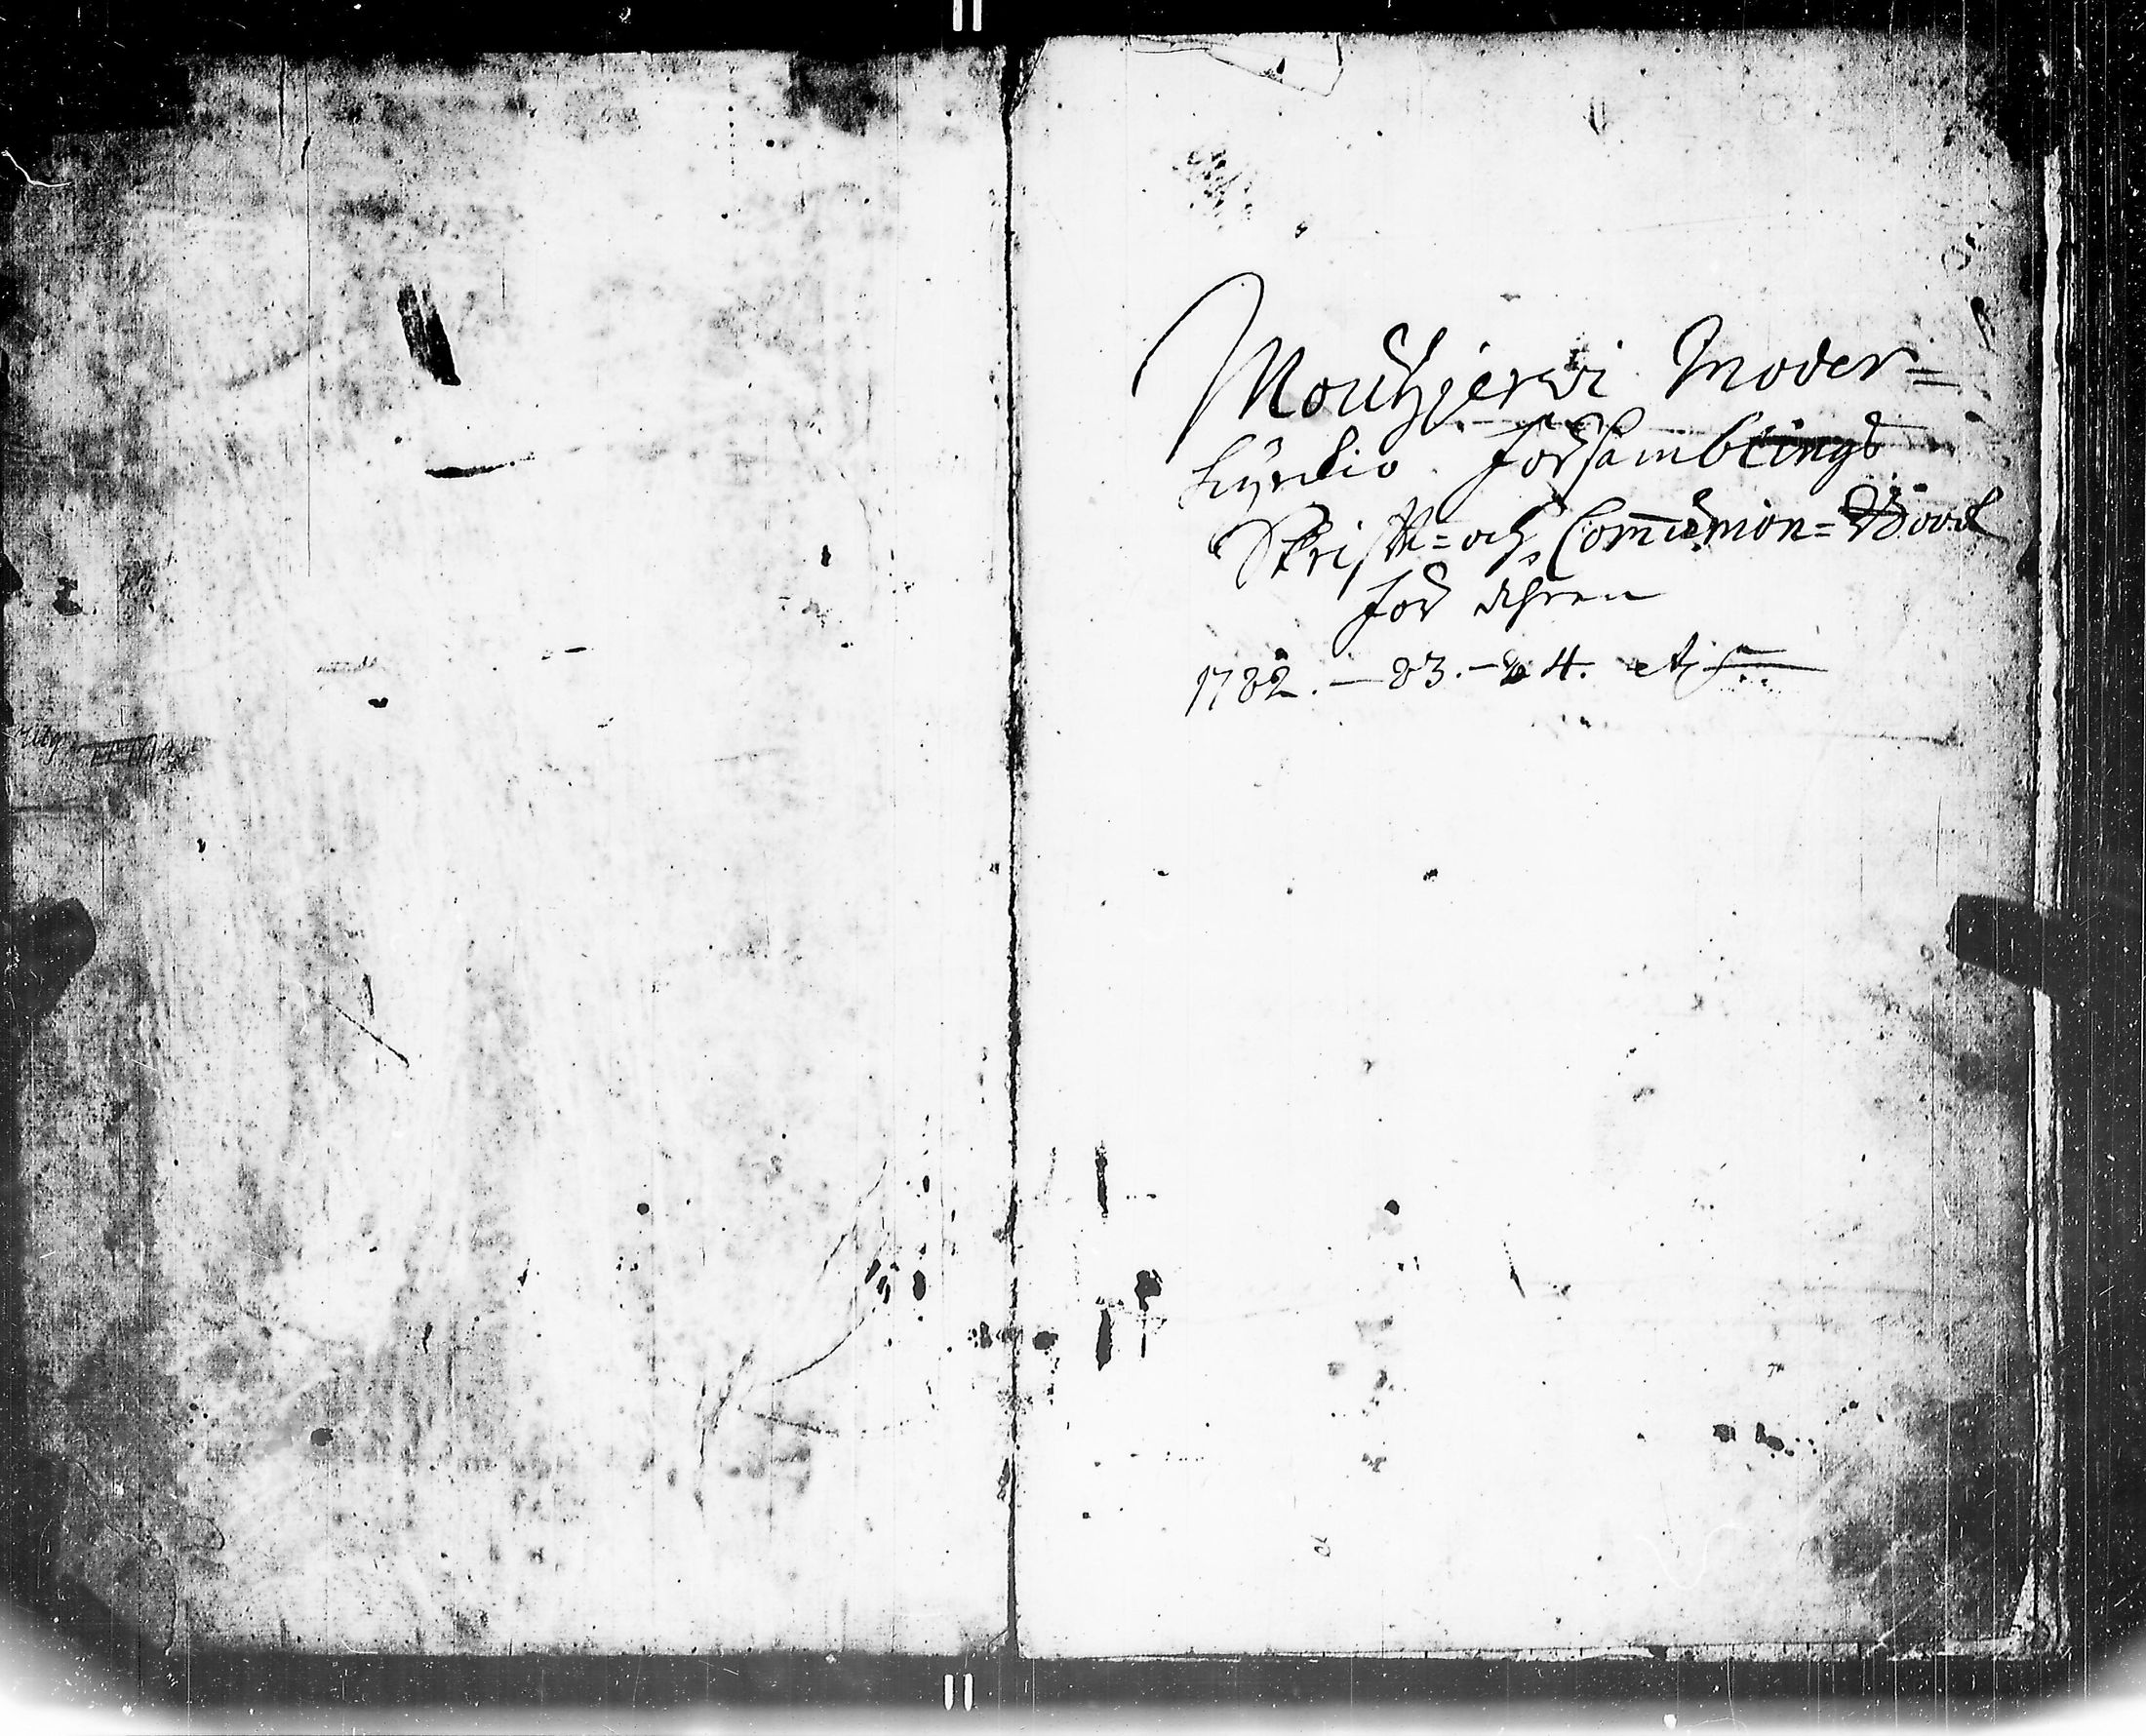 Mouhijerwi Moder=
kyrkio Församblings
Skrifft= och Com̄union=Book
för åhren
1782.—83.—84. etc